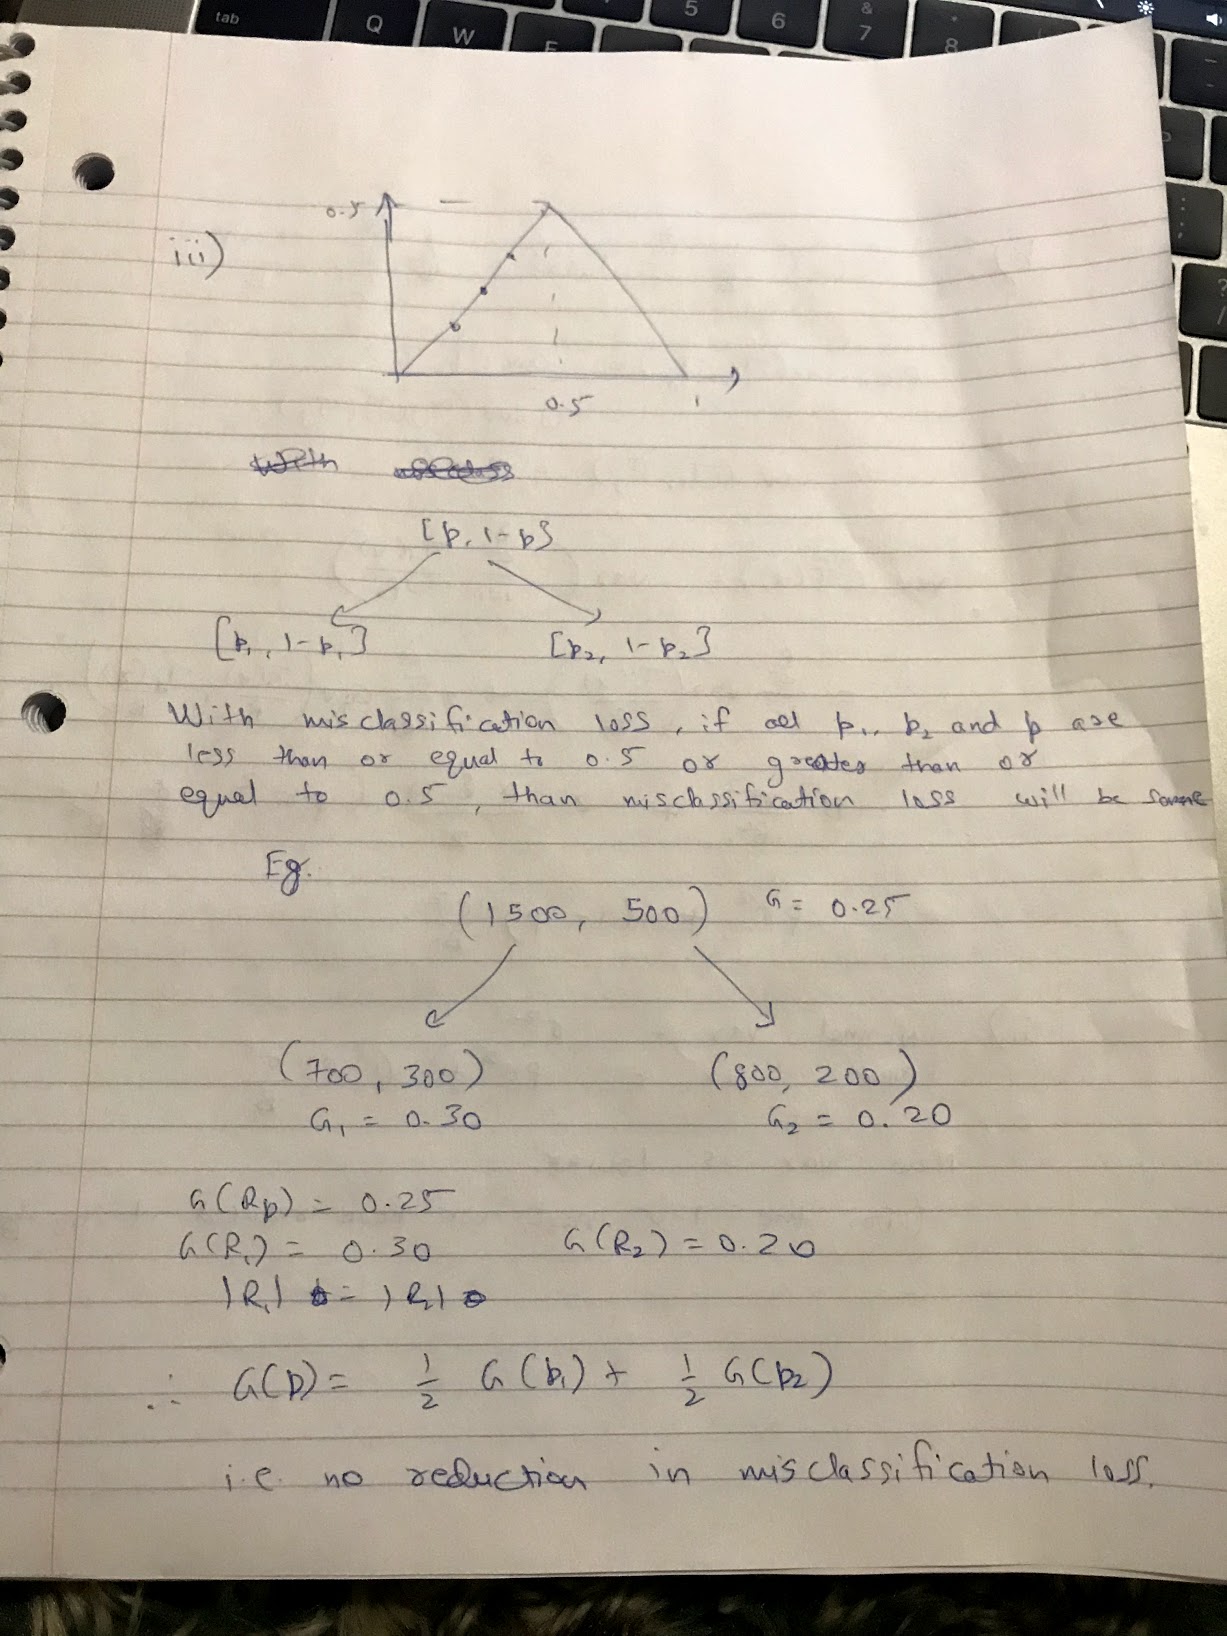 tab
Q
W
E
5
6
&
7
*
8
0.5
iii)
0.5
1
[p, 1-p]
[p₁, 1-p₁]
[p₂, 1-p₂]
With misclassification loss, if all p₁, p₂ and p are
less than or equal to 0.5 or greater than or
equal to 0.5, than misclassification loss will be same
Eg.
(1500, 500) G = 0.25
(700, 300)
(800, 200)
G₁ = 0.30
G₂ = 0.20
G(Rp) = 0.25
G(R₁) = 0.30 G(R₂) = 0.20
|R₁| = |R₂|
∴ G(p) = 1/2 G(p₁) + 1/2 G(p₂)
i.e. no reduction in misclassification loss.